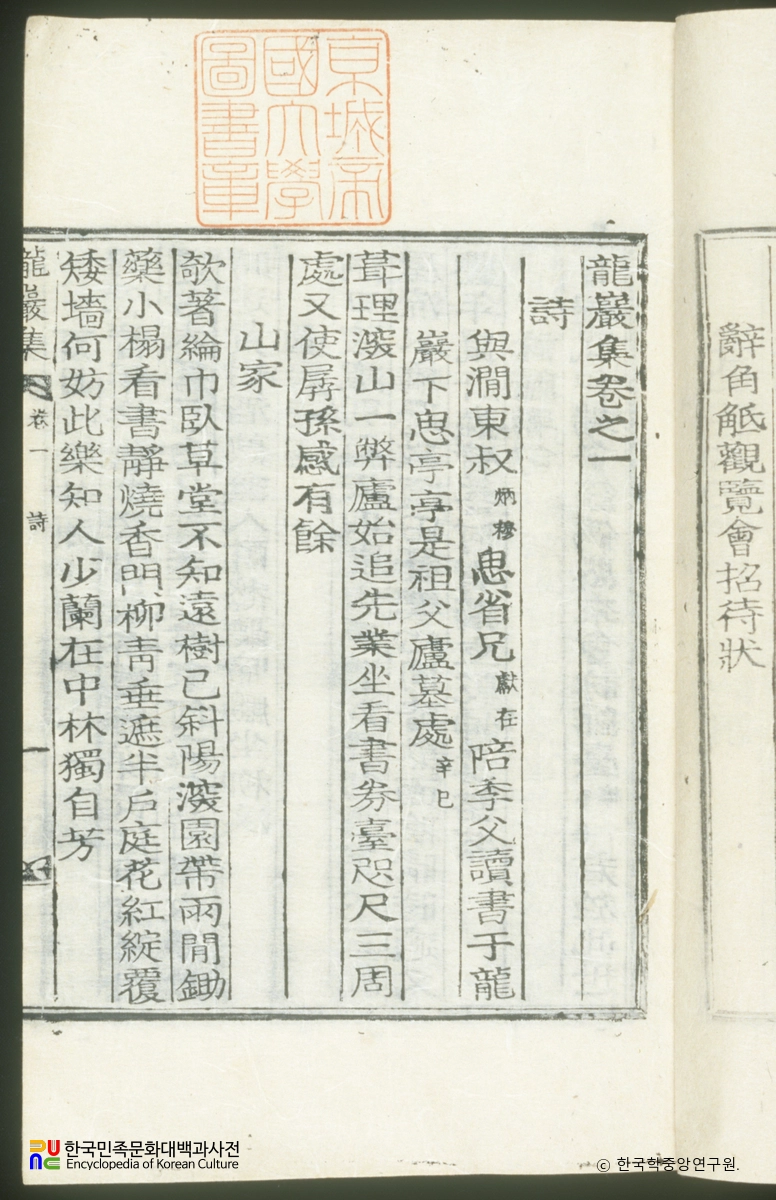 辭角觝觀覽會招待狀
京城帝
國大學
圖書章
龍巖集卷之一
詩
與澗東叔炳穆思省兄獻在陪季父讀書于龍
巖下思亭亭是祖父廬墓處辛巳
葺理㴱山一弊廬始追先業坐看書劵臺咫尺三周
處又使孱孫感有餘
山家
欹著綸巾臥草堂不知遠樹已斜陽㴱園帶雨閒鋤
藥小榻看書靜燒香門柳靑垂遮半戶庭花紅綻覆
矮墻何妨此樂知人少蘭在中林獨自芳
龍巖集 卷一 詩 一
한국민족문화대백과사전
Encyclopedia of Korean Culture
ⓒ 한국학중앙연구원.